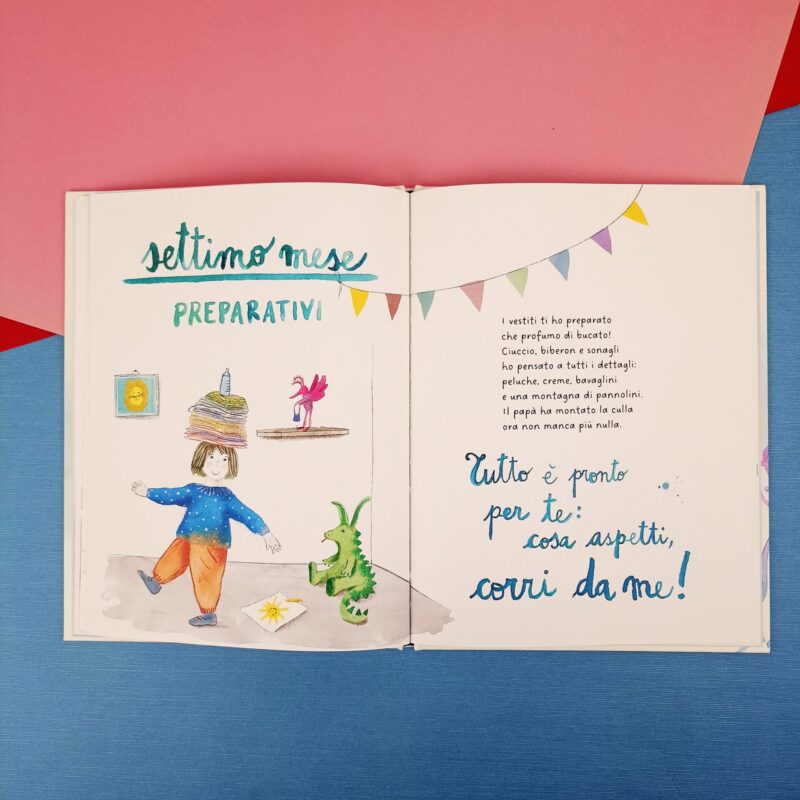 settimo mese
PREPARATIVI
I vestiti ti ho preparato
che profumo di bucato!
Ciuccio, biberon e sonagli
ho pensato a tutti i dettagli:
peluche, creme, bavaglini
e una montagna di pannolini.
Il papà ha montato la culla
ora non manca più nulla.
Tutto è pronto
per te:
cosa aspetti,
corri da me!